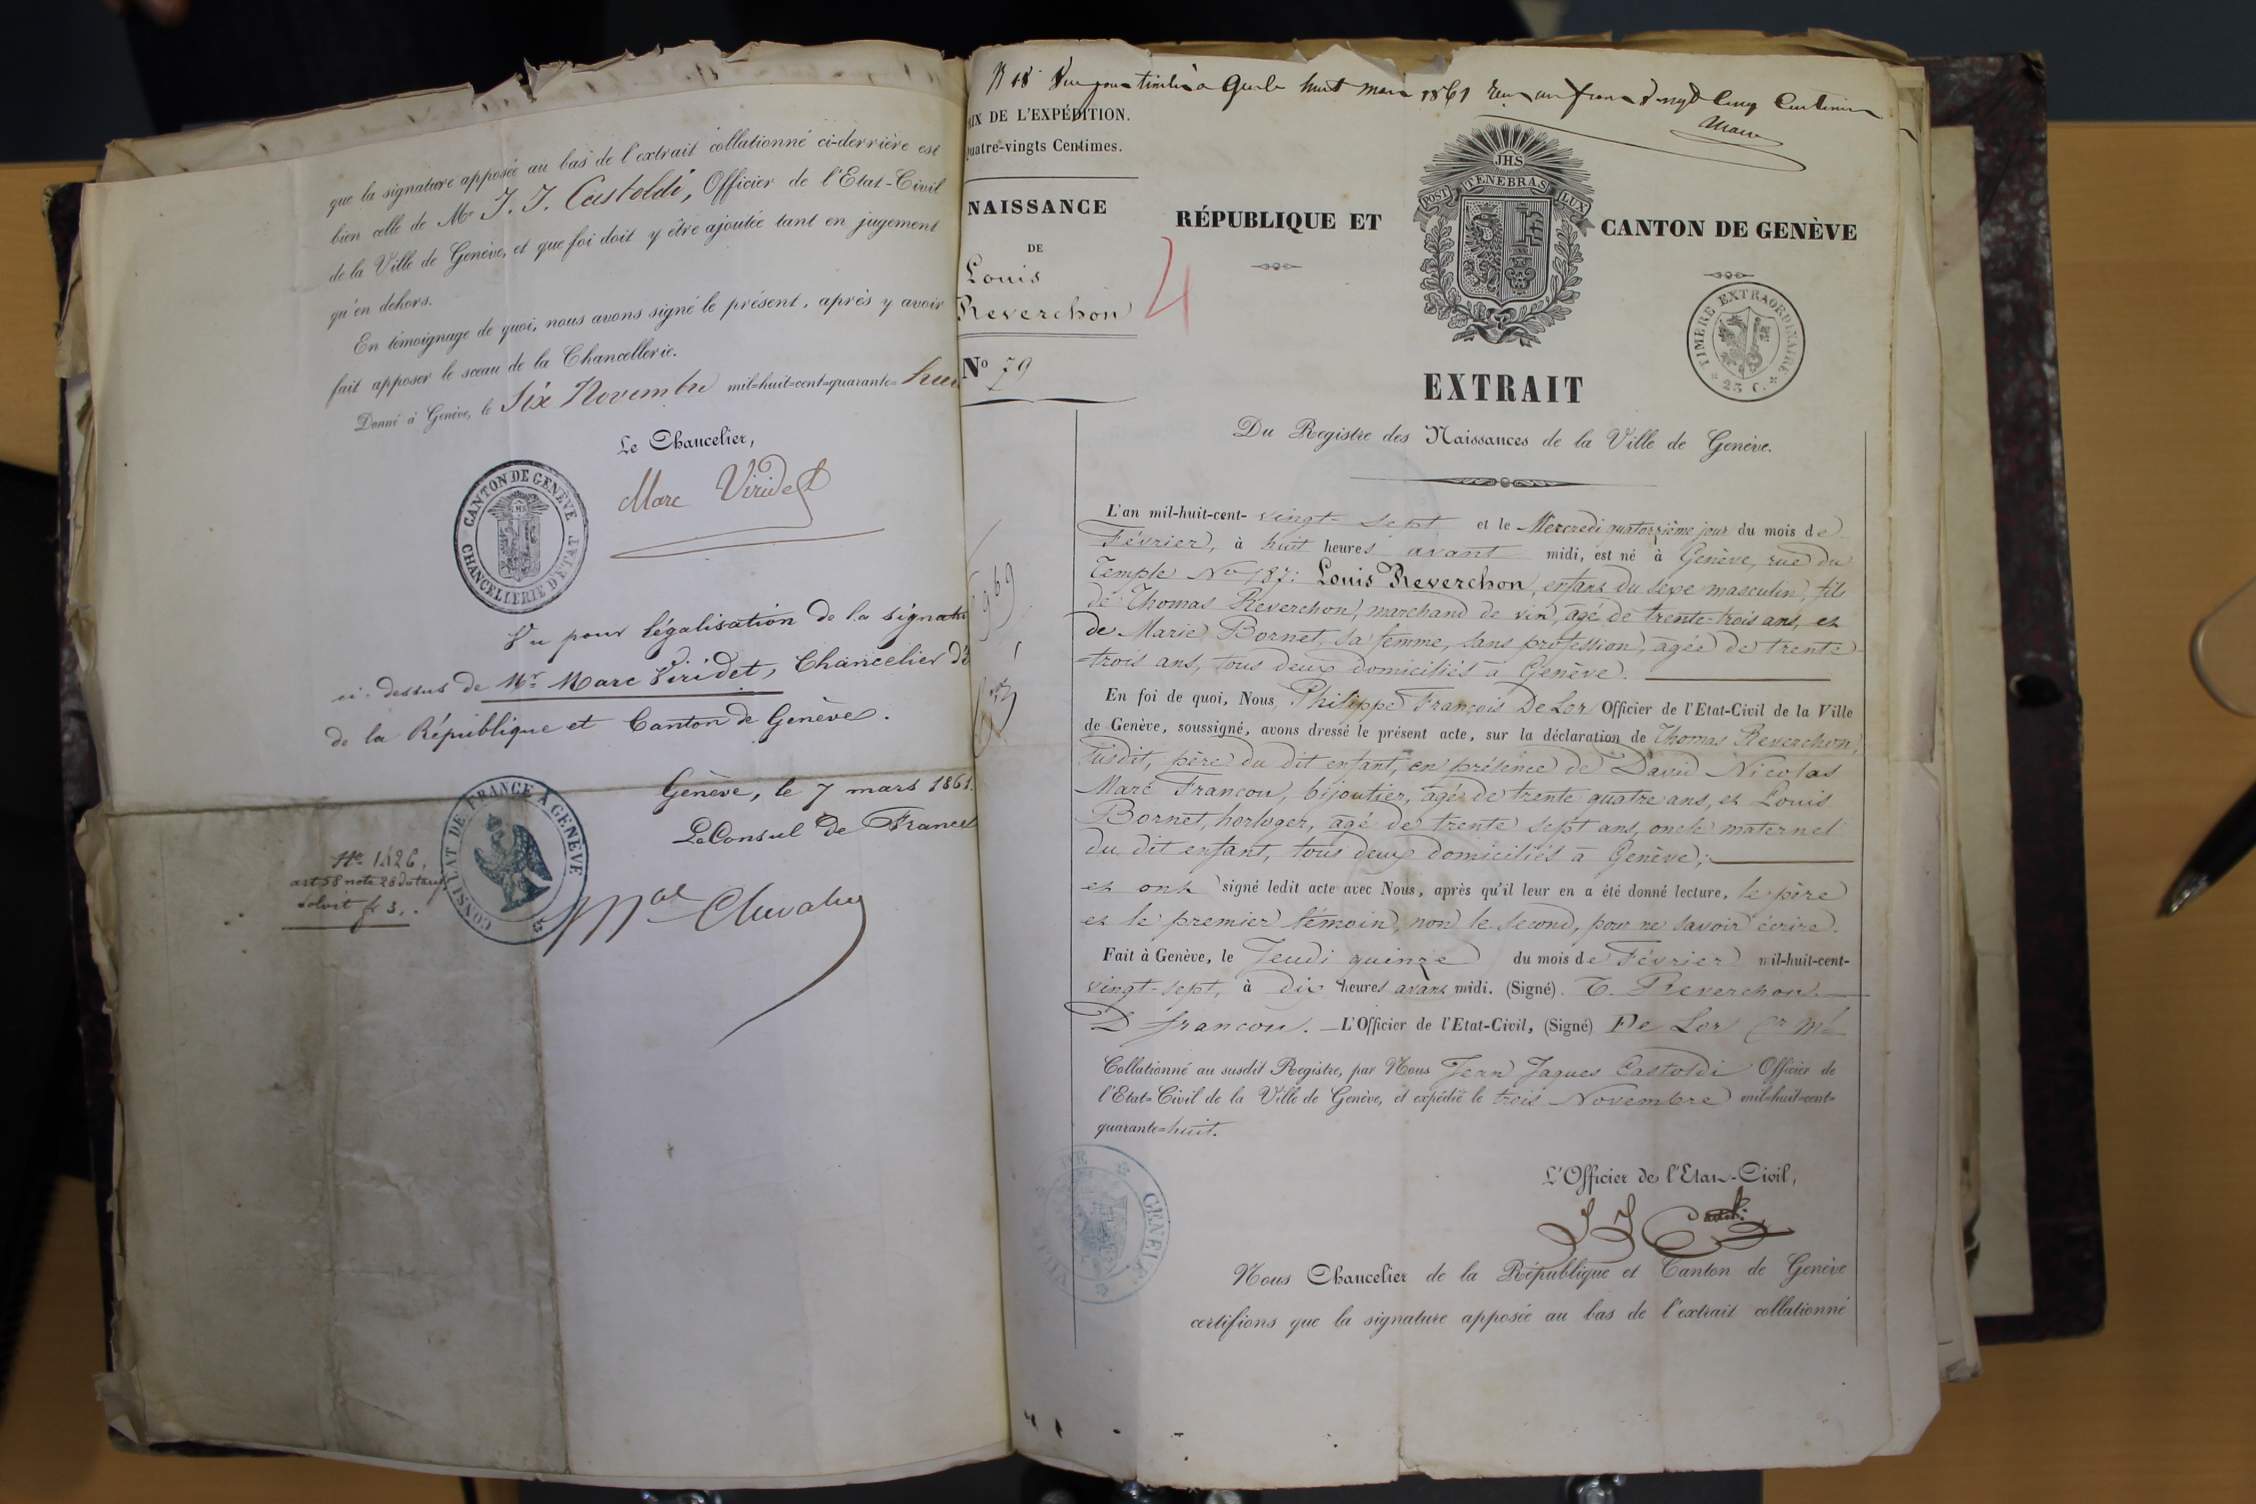 que la signature apposée au bas de l'extrait collationné ci-derrière est
bien celle de Mr J. J. Castoldi, Officier de l'Etat-Civil
de la Ville de Genève, et que foi doit y être ajoutée tant en jugement
qu'en dehors.
En témoignage de quoi, nous avons signé le présent, après y avoir
fait apposer le sceau de la Chancellerie.
Donné à Genève, le Six Novembre mil-huit-cent-quarante-hui
Le Chancelier,
Marc Viridet
CANTON DE GENÈVE
CHANCELLERIE D'ÉTAT
Vu pour légalisation de la signatu
ci-dessus de Mr Marc Viridet, Chancelier d'é
de la République et Canton de Genève.
Genève, le 7 mars 1861.
Le Consul de France
CONSULAT DE FRANCE À GENÈVE
No 1126.
art 58 note 28 du tarif
solvit fr 3.
Mal Chevalier
No 18 Vu pour timbre à Gex le huit mars 1861 Reçu un franc vingt cinq centimes
IX DE L'EXPÉDITION.
uatre-vingts Centimes.
NAISSANCE
DE
Louis
Reverchon
No 79
4
RÉPUBLIQUE ET CANTON DE GENÈVE
JHS
POST TENEBRAS LUX
TIMBRE EXTRAORDINAIRE
25 C.
EXTRAIT
Du Registre des Naissances de la Ville de Genève.
L'an mil-huit-cent-vingt-sept et le Mercredi quatorzième jour du mois de
Février, à huit heures avant midi, est né à Genève, rue du
Temple No 187: Louis Reverchon, enfant du sexe masculin, fils
de Thomas Reverchon, marchand de vin, agé de trente-trois ans, et
de Marie Bornet, sa femme, sans profession, agée de trente-
trois ans, tous deux domiciliés à Genève.
En foi de quoi, Nous Philippe François De Lor Officier de l'Etat-Civil de la Ville
de Genève, soussigné, avons dressé le présent acte, sur la déclaration de Thomas Reverchon,
susdit, père du dit enfant, en présence de David Nicolas
Marc Francou, bijoutier, agé de trente quatre ans, et Louis
Bornet, horloger, agé de trente sept ans, oncle maternel
du dit enfant, tous deux domiciliés à Genève;
et ont signé ledit acte avec Nous, après qu'il leur en a été donné lecture, le père
et le premier témoin, non le second, pour ne savoir écrire.
Fait à Genève, le Jeudi quinze du mois de Février mil-huit-cent-
vingt-sept, à dix heures avant midi. (Signé). T. Reverchon.
D Francou. L'Officier de l'Etat-Civil, (Signé) De Lor
Collationné au susdit Registre, par Nous Jean Jaques Castoldi Officier de
l'Etat-Civil de la Ville de Genève, et expédié le trois Novembre mil-huit-cent-
quarante-huit.
L'Officier de l'Etat-Civil,
VILLE DE GENÈVE
Nous Chancelier de la République et Canton de Genève
certifions que la signature apposée au bas de l'extrait collationné